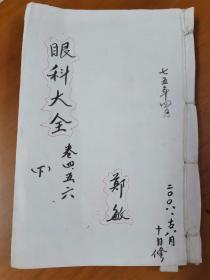 七五年四月
二〇〇八.八月
十日修
眼科大全
卷四五六
下
鄭敏